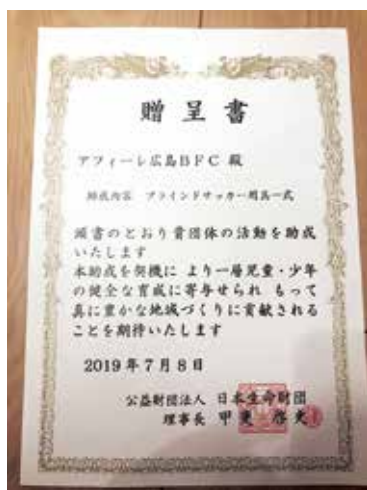 贈呈書
アフィーレ広島BFC 殿
助成内容 ブラインドサッカー用具一式
頭書のとおり貴団体の活動を助成
いたします
本助成を契機に より一層児童・少年
の健全な育成に寄与せられ もって
真に豊かな地域づくりに貢献される
ことを期待いたします
2019年7月8日
公益財団法人 日本生命財団
理事長 甲斐 啓史